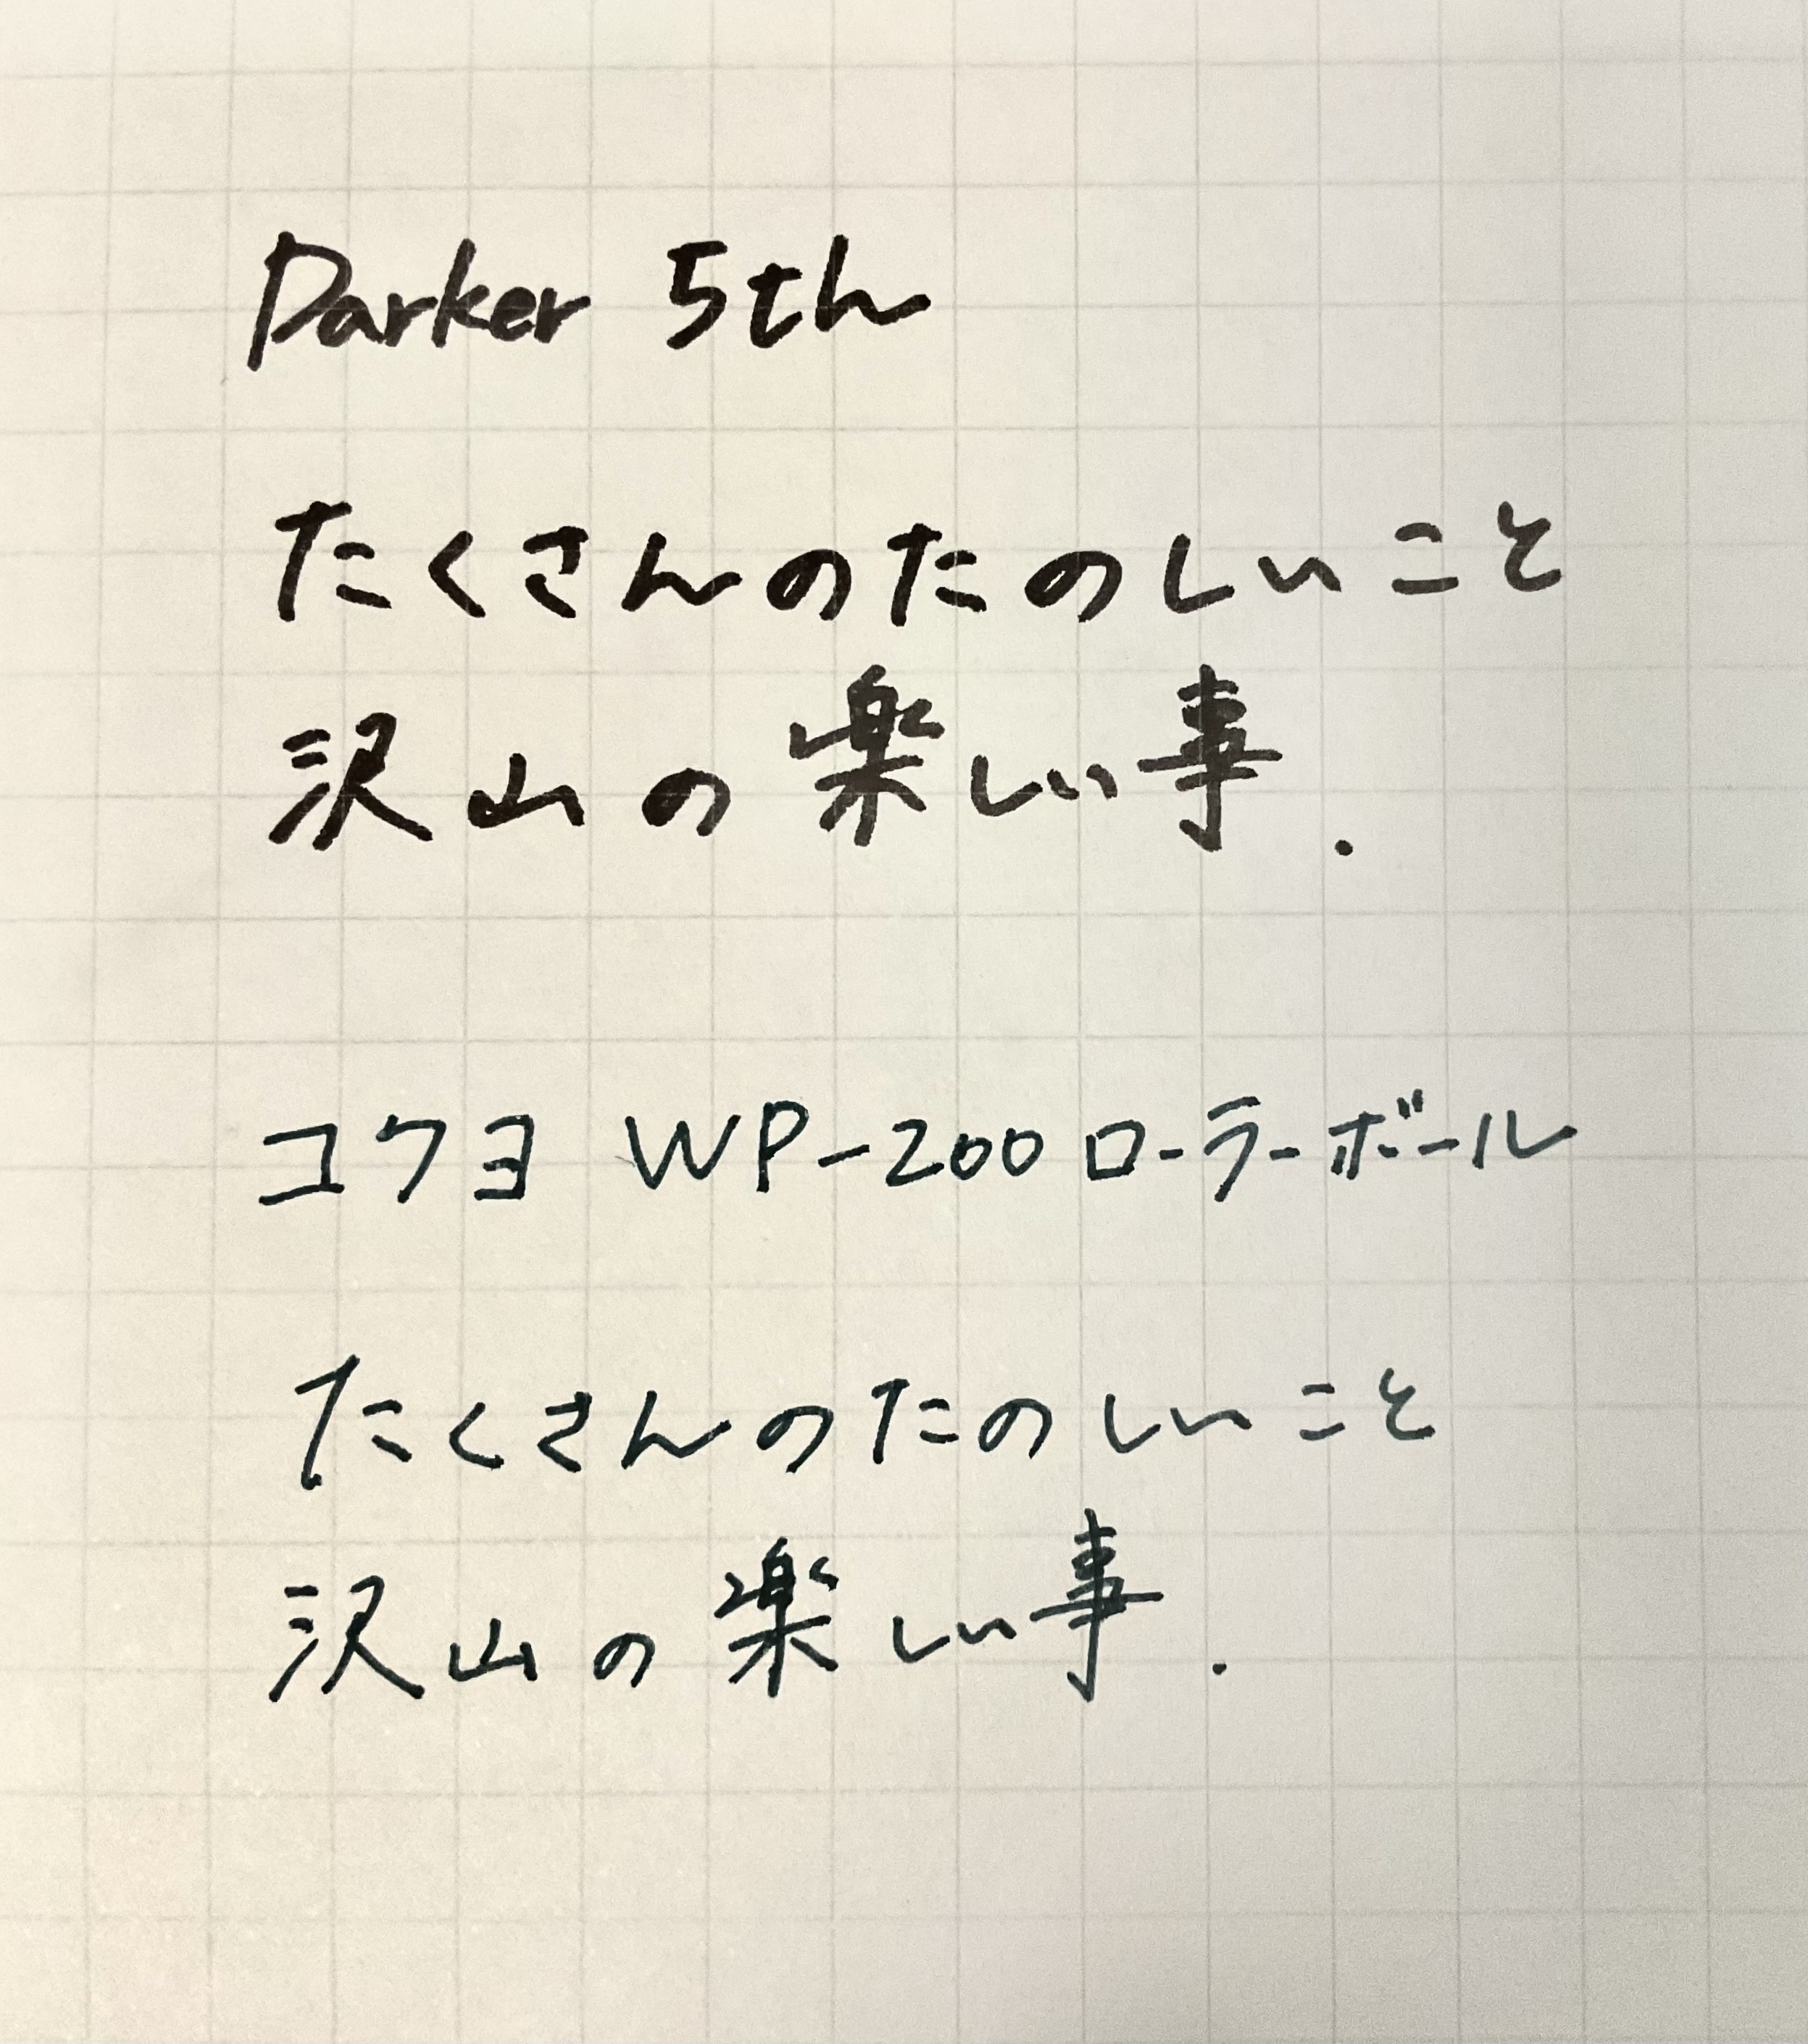 Parker 5th
たくさんのたのしいこと
沢山の楽しい事.
コクヨ WP-200 ローラーボール
たくさんのたのしいこと
沢山の楽しい事.